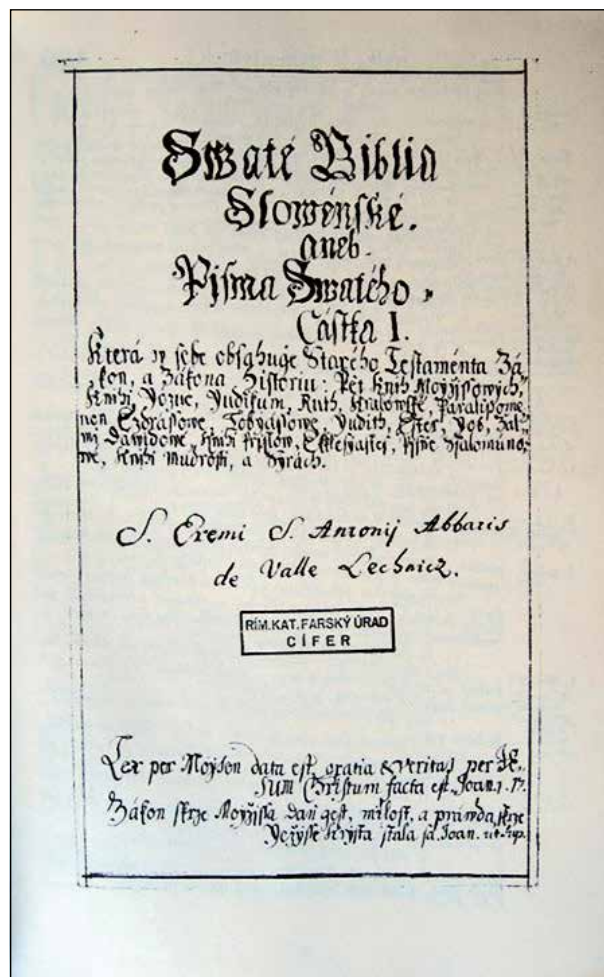 Swaté Biblia
Slowénské.
aneb.
Pisma Swatého.
Částka I.
Která w sebe obsahuge Starého Testaménta Zá-
kon, a Zákona Historiu: Pět Knih Moyžissowych,
Knihi Yozue, Yudikum, Ruth, Kralowské, Paralipome-
non Ezdrássowe, Tobyássowe, Yudith, Ester, Yob, Žal-
mi Dawidowe, Knihi Prislow, Ekklesyastes, Pisne Ssalomuno-
we, Knihi Mudrosti, a Syrách.
S. Eremi S. Antonij Abbatis
de Valle Lechnicz.
RÍM.KAT.FARSKÝ ÚRAD
CÍFER
Lex per Moysen data est, gratia & veritas per JE-
SUM Christum facta est. Joan. 1. 17.
Zákon skrze Moyžissa dan gest, milost, a prawda skrze
Yežisse Krysta stala sa. Joan. ut sup.